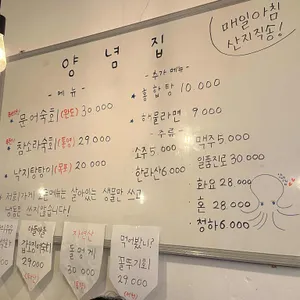 매일아침
산지직송!
양념집
- 메뉴 -
문어숙회(완도) 30000
참소라숙회(통영) 29000
낙지탕탕이(목포) 20000
- 추가메뉴 -
홍합탕 10000
해물라면 9000
- 주류 -
소주 5000
한라산 6000
맥주 5000
일품진로 30000
화요 28000
혼 28000
청하 6000
저희 가게 살아있는 생물만 쓰고
냉동은 쓰지않습니다!
갑오징어숙회
29000
자연산
돌멍게
30000
먹어봤니?
꿀뚜기회!
29000